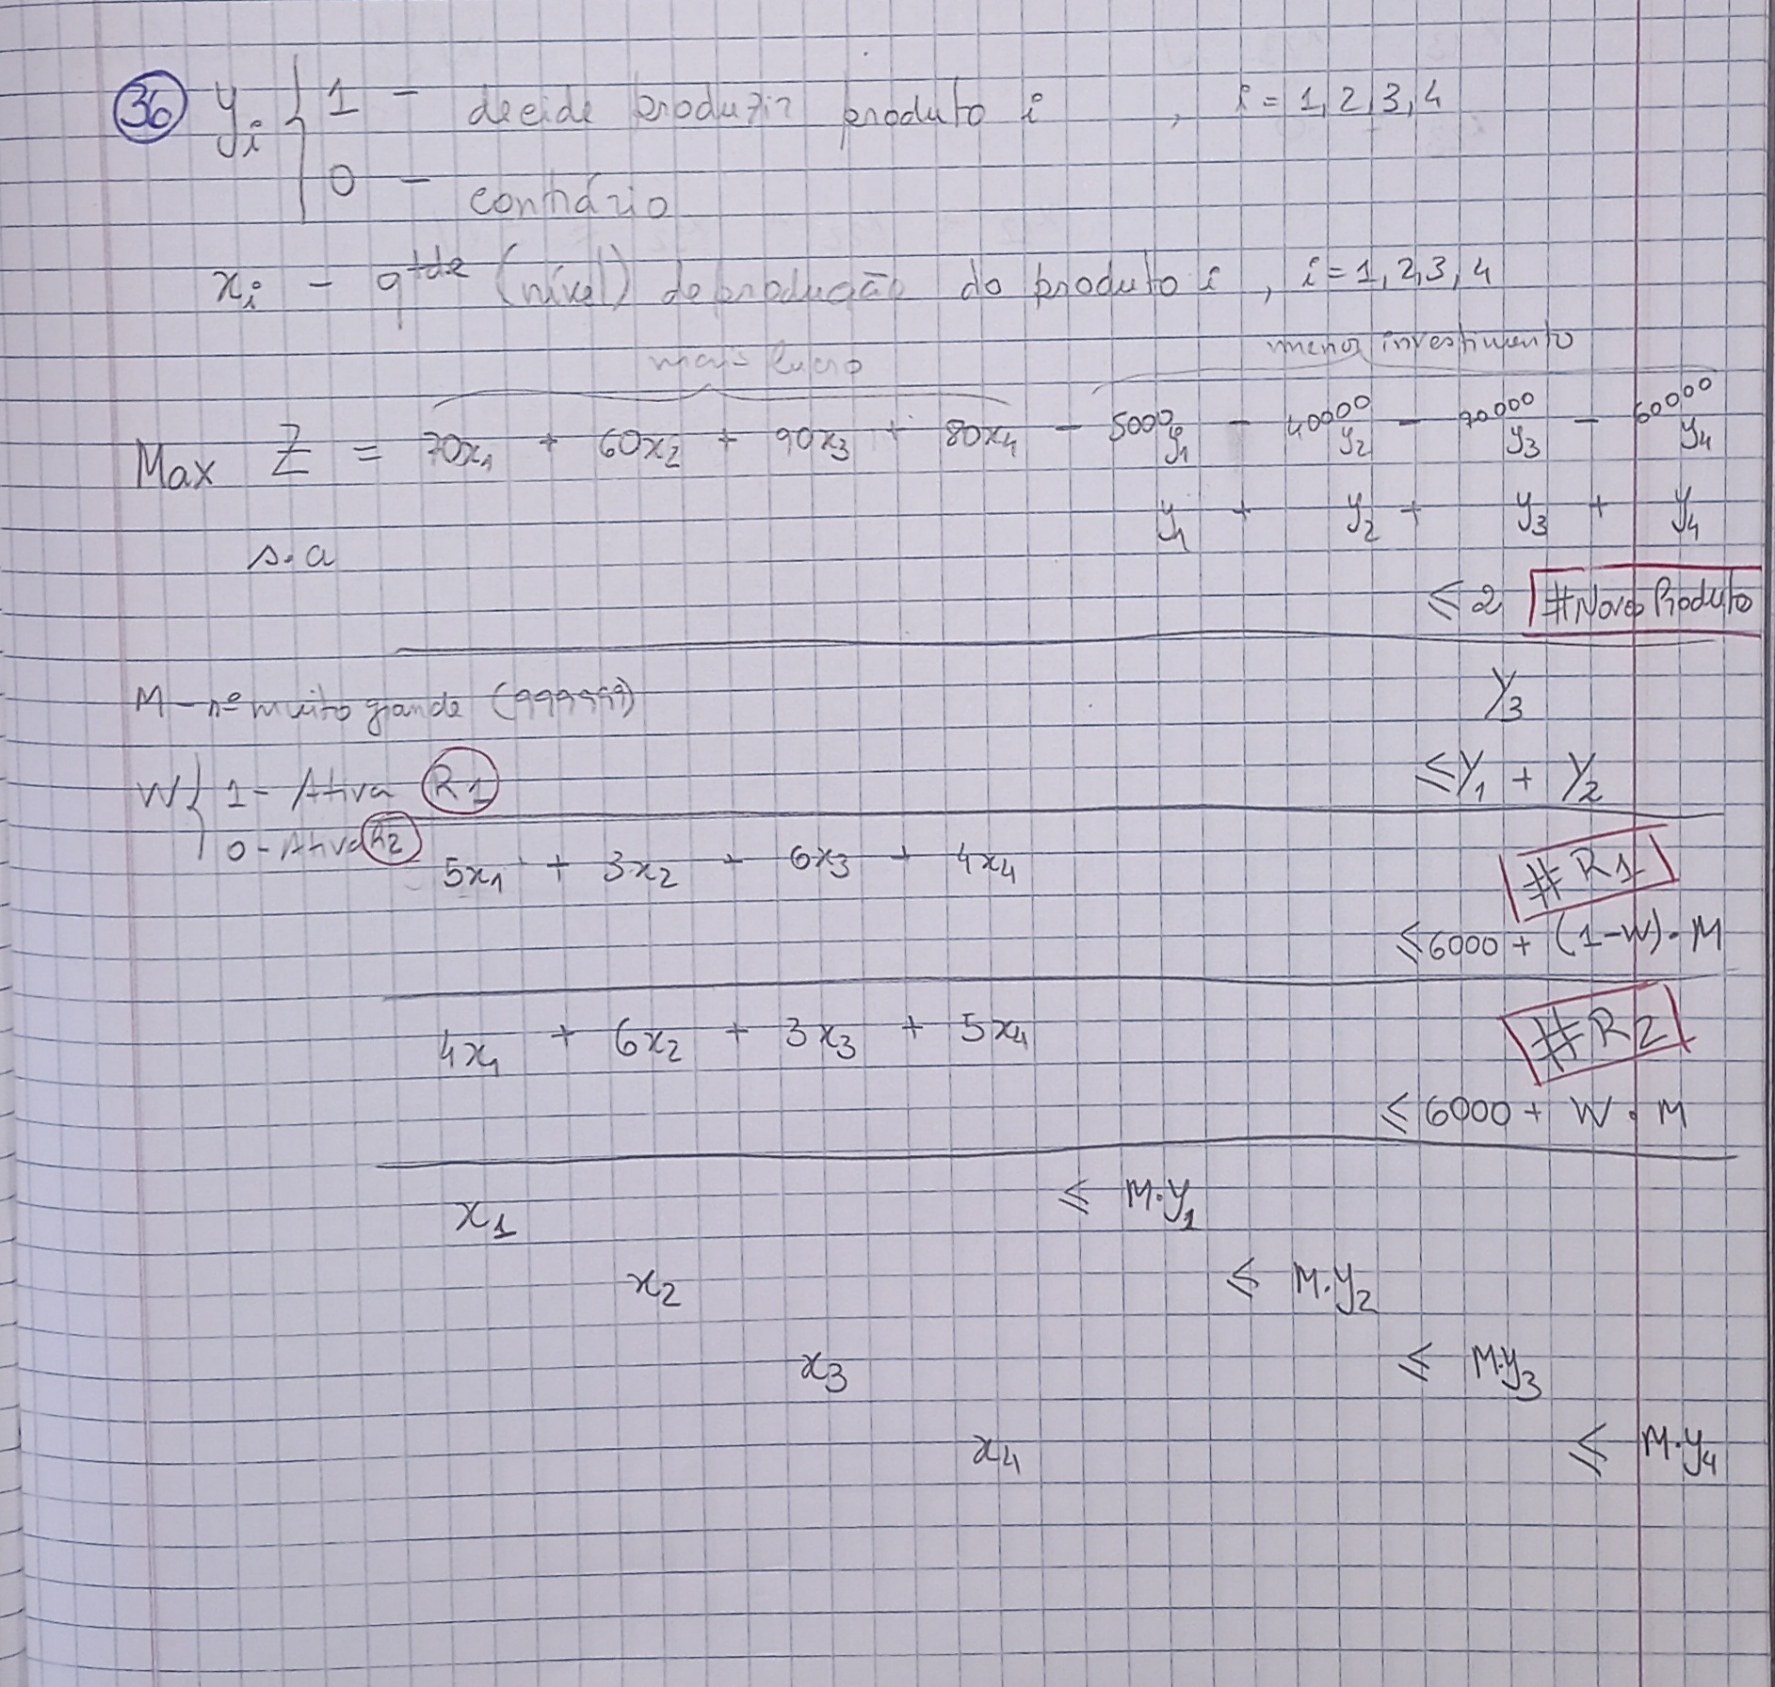 36 yi { 1 - decide produzir produto i , i = 1,2,3,4
0 - contrário
xi - qtde (nível) de produção do produto i , i = 1,2,3,4
mais lucro menor investimento
Max Z = 70x1 + 60x2 + 90x3 + 80x4 - 50000 y1 - 40000 y2 - 70000 y3 - 60000 y4
s.a y1 + y2 + y3 + y4
≤ 2 #Novos Produto
M - nº muito grande (999999) y3
W { 1 - Ativa R1 ≤ y1 + y2
0 - Ativa R2
5x1 + 3x2 + 6x3 + 4x4 #R1
≤ 6000 + (1-W).M
4x1 + 6x2 + 3x3 + 5x4 #R2
≤ 6000 + W.M
x1 ≤ M.y1
x2 ≤ M.y2
x3 ≤ M.y3
x4 ≤ M.y4